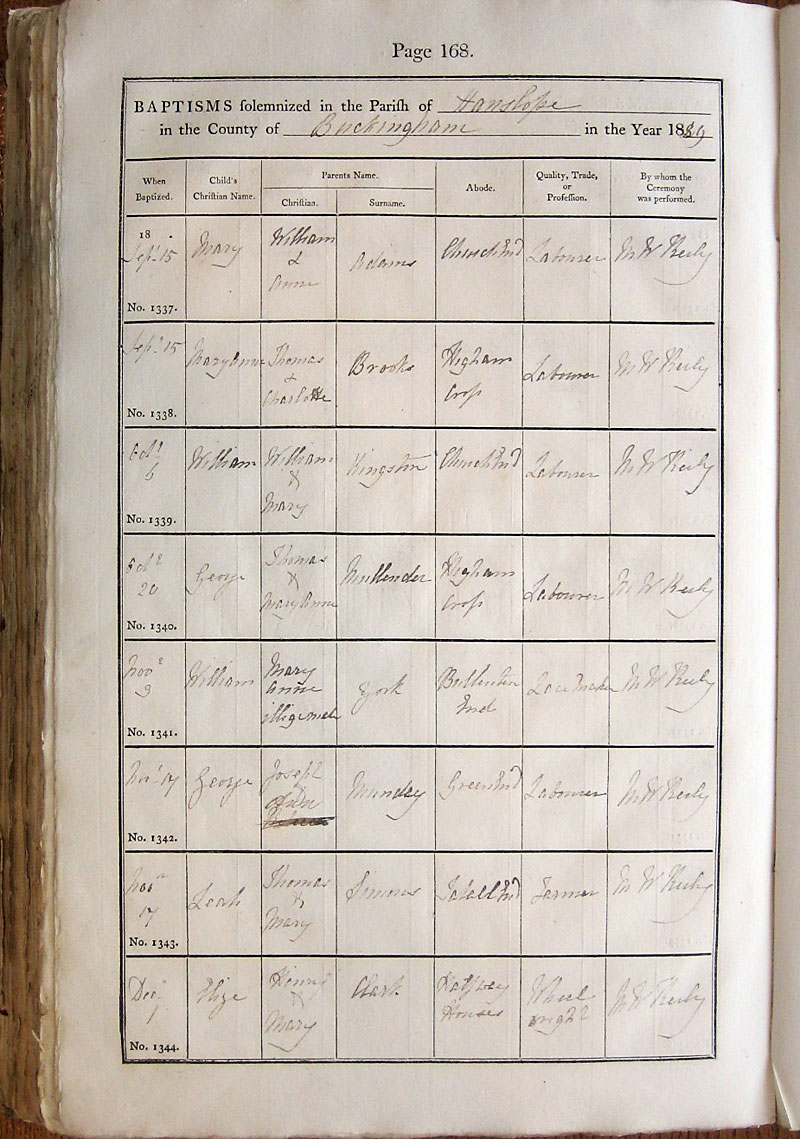 Page 168.
BAPTISMS ſolemnized in the Pariſh of Hanslope
in the County of Buckingham in the Year 1839
When Baptized.
Child's Chriſtian Name.
Parents Name.
Chriſtian.
Surname.
Abode.
Quality, Trade, or Profeſſion.
By whom the Ceremony was performed.
18 .
Sept. 15
No. 1337.
Mary
William
&
Anne
Adams
Church End
Labourer
M W Reily
Sept. 15
No. 1338.
Mary Anne
Thomas
&
Charlotte
Brooks
Higham
Cross
Labourer
M W Reily
Octr
6
No. 1339.
William
William
&
Mary
Kingston
Church End
Labourer
M W Reily
Octr
20
No. 1340.
George
Thomas
&
Mary Anne
Mullender
Higham
Cross
Labourer
M W Reily
Novr
3
No. 1341.
William
Mary
Anne
York
End
Lace Maker
M W Reily
Novr 17
No. 1342.
George
Joseph
&
Munday
Green End
Labourer
M W Reily
Novr
17
No. 1343.
Leah
Thomas
&
Mary
Simons
End
Farmer
M W Reily
Decr
1
No. 1344.
Eliza
Henry
&
Mary
Clark
Halfway
Houses
Wheel
wright
M W Reily